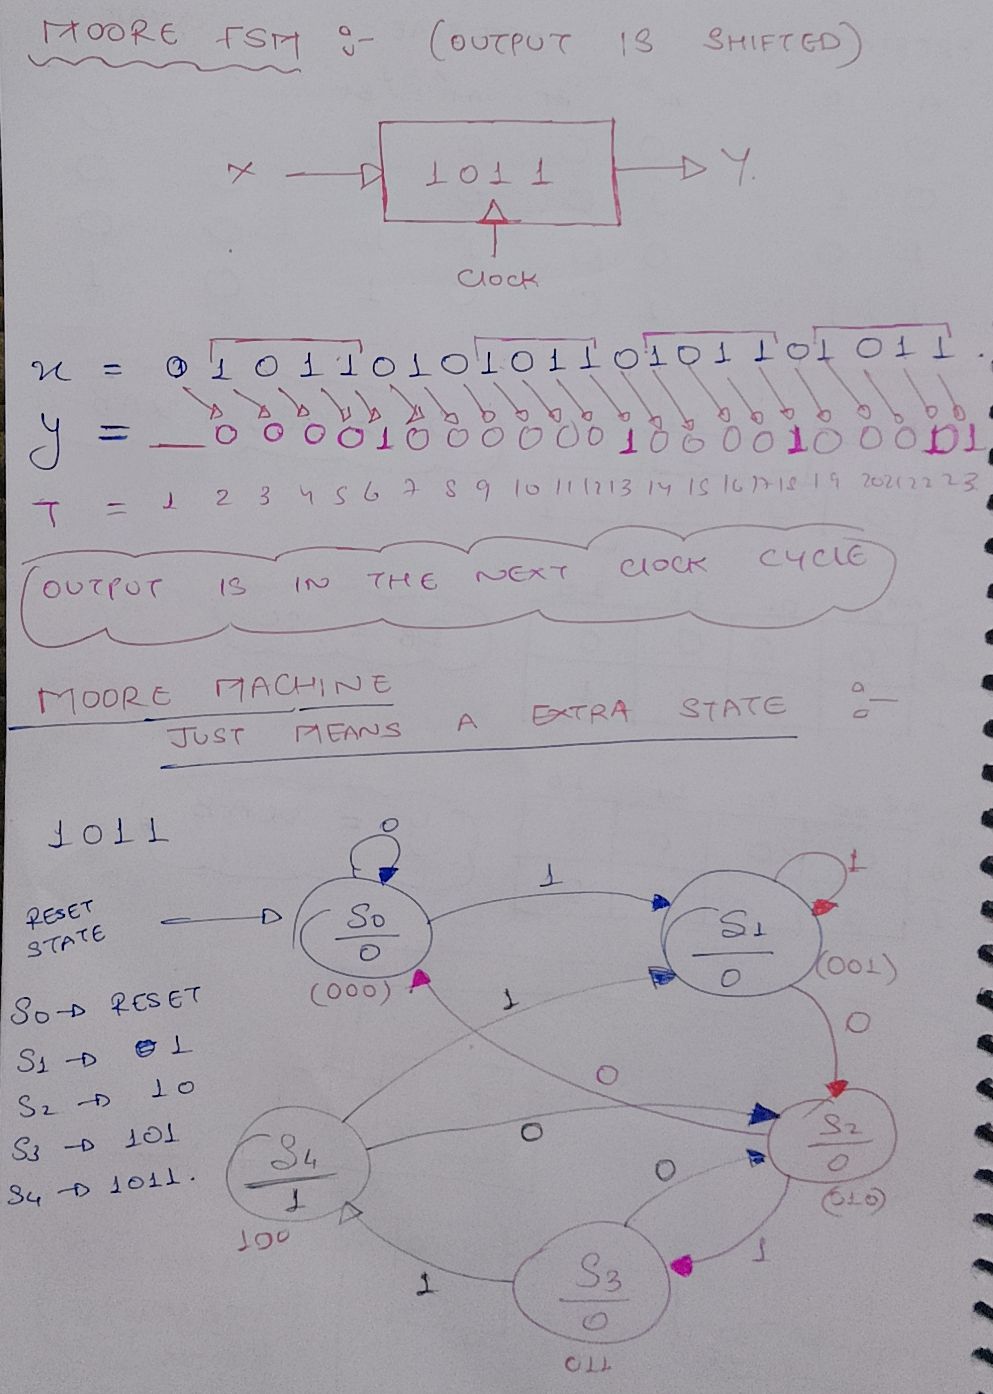 MOORE FSM :- (OUTPUT IS SHIFTED)
X 1011 Y.
Clock
x = 0 1 0 1 1 0 1 0 1 0 1 1 0 1 0 1 1 0 1 0 1 1 .
y = _ 0 0 0 0 1 0 0 0 0 0 0 1 0 0 0 0 1 0 0 0 1
T = 1 2 3 4 5 6 7 8 9 10 11 12 13 14 15 16 17 18 19 20 21 22 23
OUTPUT IS IN THE NEXT CLOCK CYCLE
MOORE MACHINE
JUST MEANS A EXTRA STATE :-
1011
RESET STATE
0
S0
0
(000)
1
S1
0
(001)
1
0
1
0
S0 → RESET
S1 → 1
S2 → 10
S3 → 101
S4 → 1011.
S4
1
100
0
0
S2
0
(010)
1
1
S3
0
011